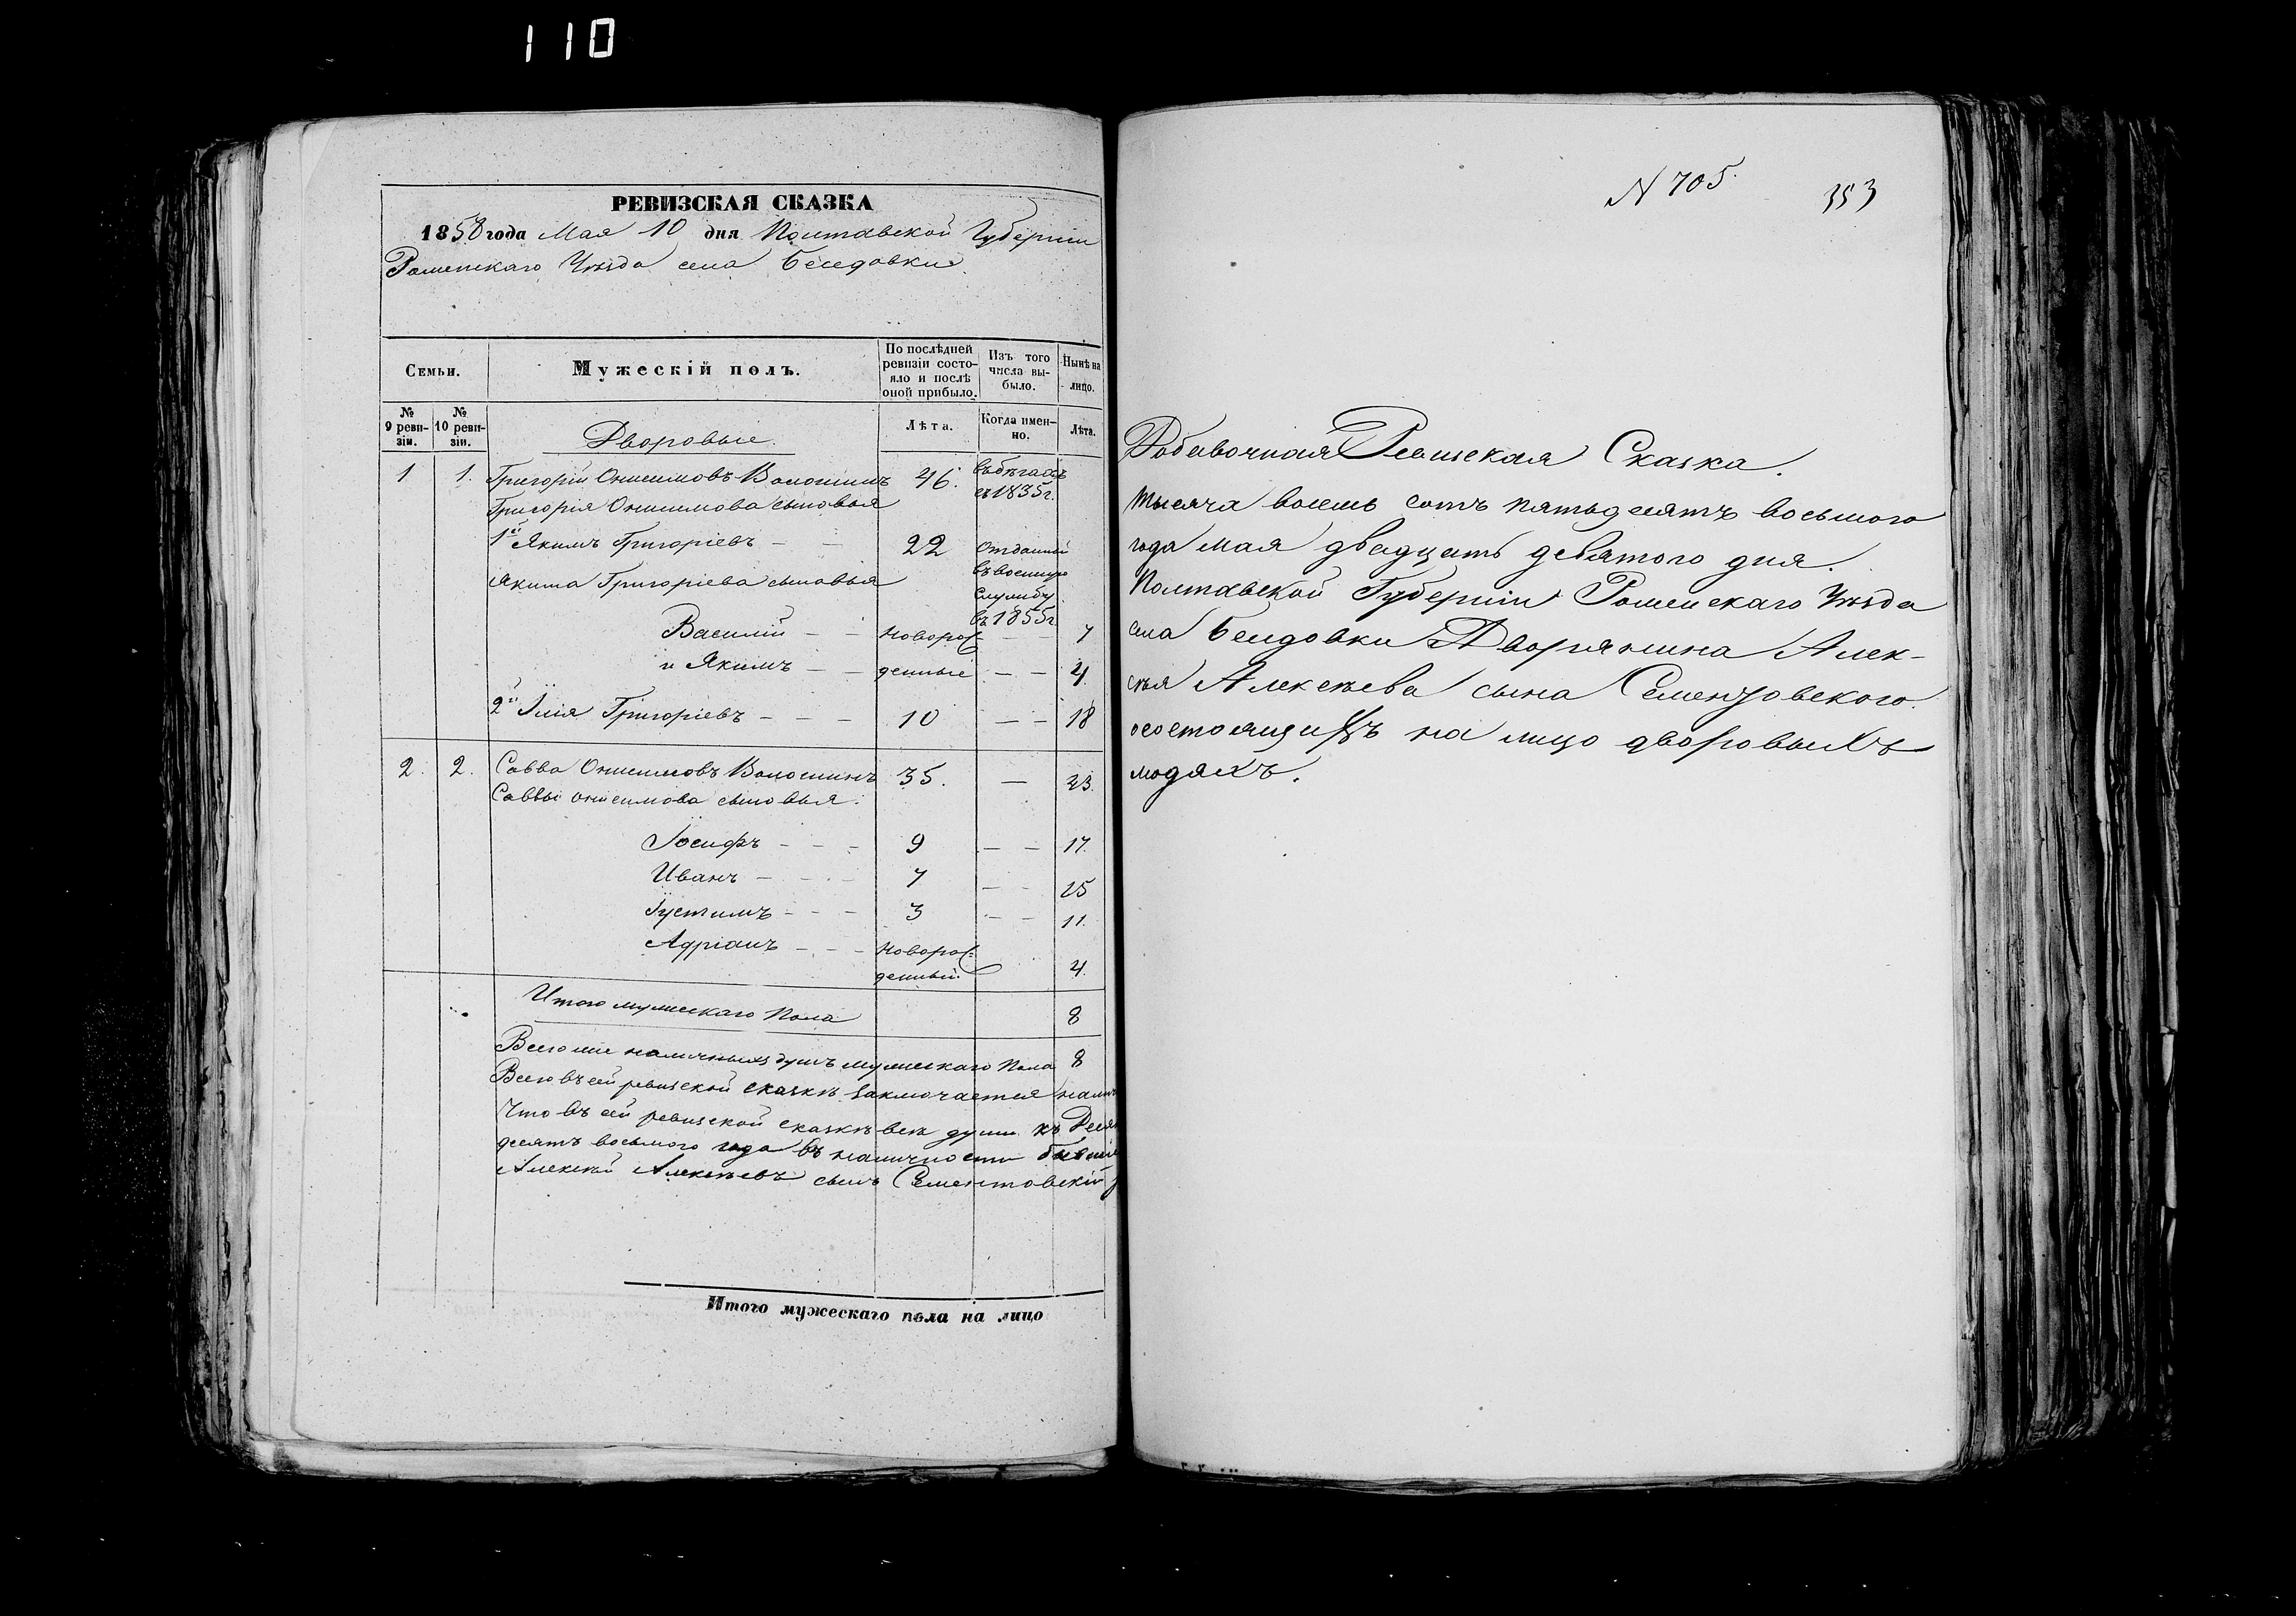 110
РЕВИЗСКАЯ СКАЗКА
1858 года Мая 10 дня Полтавской Губерніи
Роменскаго Уѣзда села Беседовки
Семьи.
Мужескій полъ.
По послѣдней ревизіи состояло и послѣ оной прибыло.
Изъ того числа выбыло.
Нынѣ на лицо.
№ 9 ревизіи.
№ 10 ревизіи.
Лѣта.
Когда именно.
Лѣта.
Дворовые.
1 1. Григорій Онисимовъ Волошинъ 46. въ бѣгахъ
съ 1835 г.
Григорія Онисимова сыновья
1й Якимъ Григоріевъ - - 22 отданный
въ военную
службу
въ 1855 г
Якима Григоріева сыновья
Василій - - новорож - - 7
и Якимъ - - денные - - 4.
2й Илія Григоріевъ - - - 10 - - 18
2. 2. Савва Онисимовъ Волошинъ 35. - 23.
Саввы Онисимова сыновья.
Іосифъ - - - 9 - - 17.
Иванъ - - - 7 - - 15
Іустимъ - - - 3 - - 11.
Адріанъ - - - новорож=
денный. 4.
Итого мужескаго пола 8
Всего же наличныхъ душъ мужескаго пола 8
Всего въ сей ревизской сказкѣ заключается
Что въ сей ревизской сказкѣ всѣ души къ
десятъ восьмого года въ наличности
Алексѣй Алексѣевъ сынъ Сементовскій
Итого мужескаго пола на лицо
N 705.
353
Добавочная Ревизская Сказка.
тысяча восемь сотъ пятьдесятъ восьмого
года мая двадцать девятого дня.
Полтавской Губерніи Роменскаго Уѣзда
села Беседовки Дворянина Алек-
сѣя Алексѣева сына Сементовского.
о состоящихъ на лицо дворовыхъ
людяхъ.